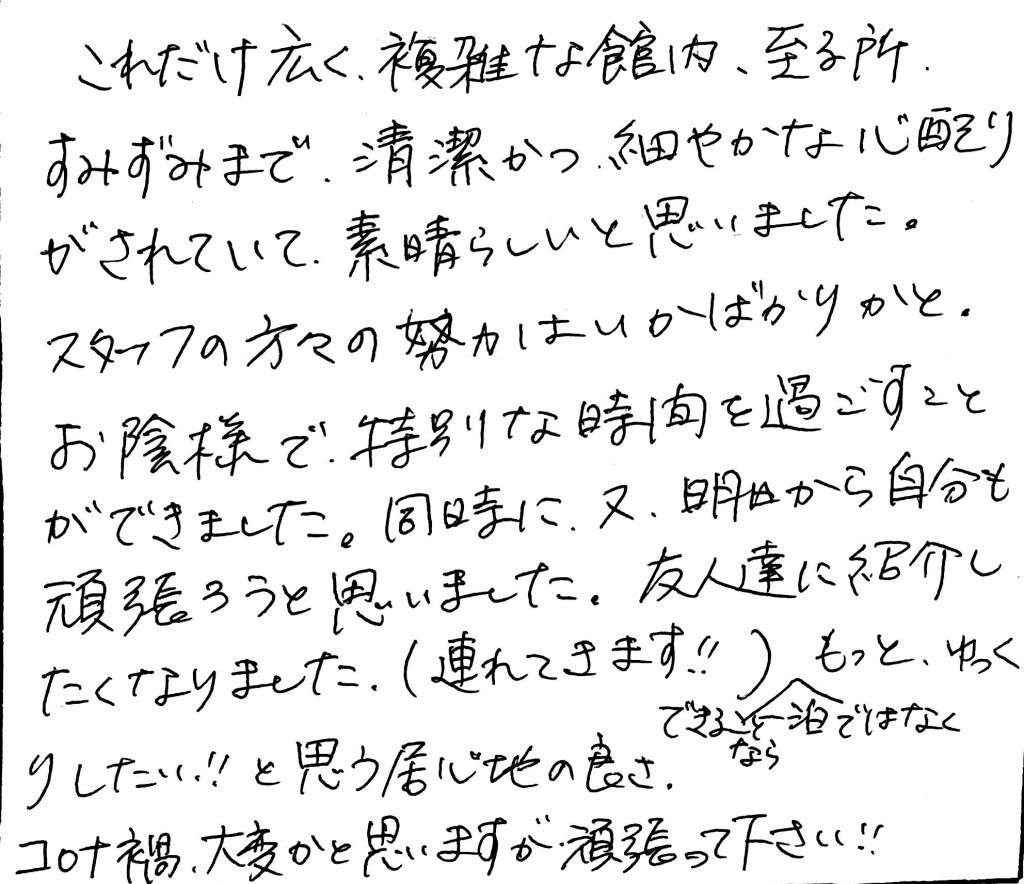 これだけ広く、複雑な館内、至る所、
すみずみまで、清潔かつ、細やかな心配り
がされていて、素晴らしいと思いました。
スタッフの方々の努力はいかばかりかと。
お陰様で、特別な時間を過ごすこと
ができました。同時に、又、明日から自分も
頑張ろうと思いました。友人達に紹介し
たくなりました、(連れてきます!!) もっと、ゆっく
できるなら一泊ではなく
りしたい!!と思う居心地の良さ、
コロナ禍、大変かと思いますが、頑張って下さい!!